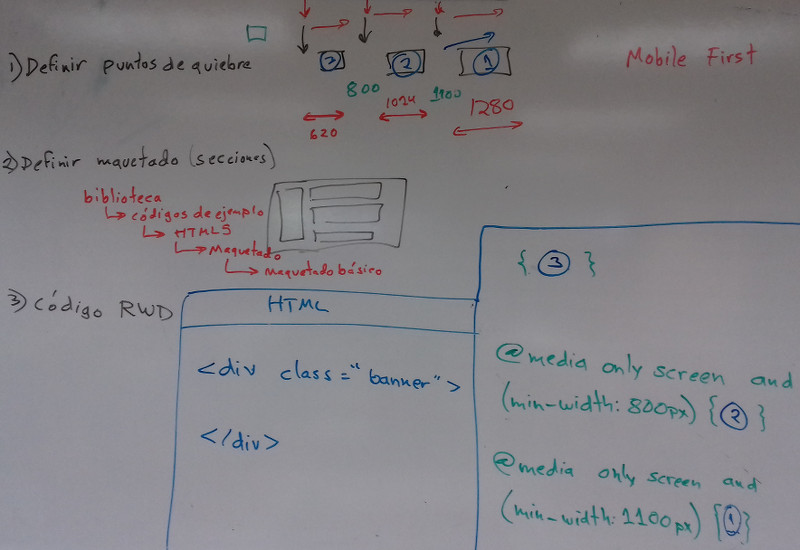 Mobile First
1) Definir puntos de quiebre
2 1
800 1024 1100 1280
620
2) Definir maquetado (secciones)
biblioteca
códigos de ejemplo
HTML5
Maquetado
maquetado básico
3) Código RWD
HTML
<div class="banner">
</div>
{ 3 }
@media only screen and
(min-width: 800px) { 2 }
@media only screen and
(min-width: 1100px) { 1 }